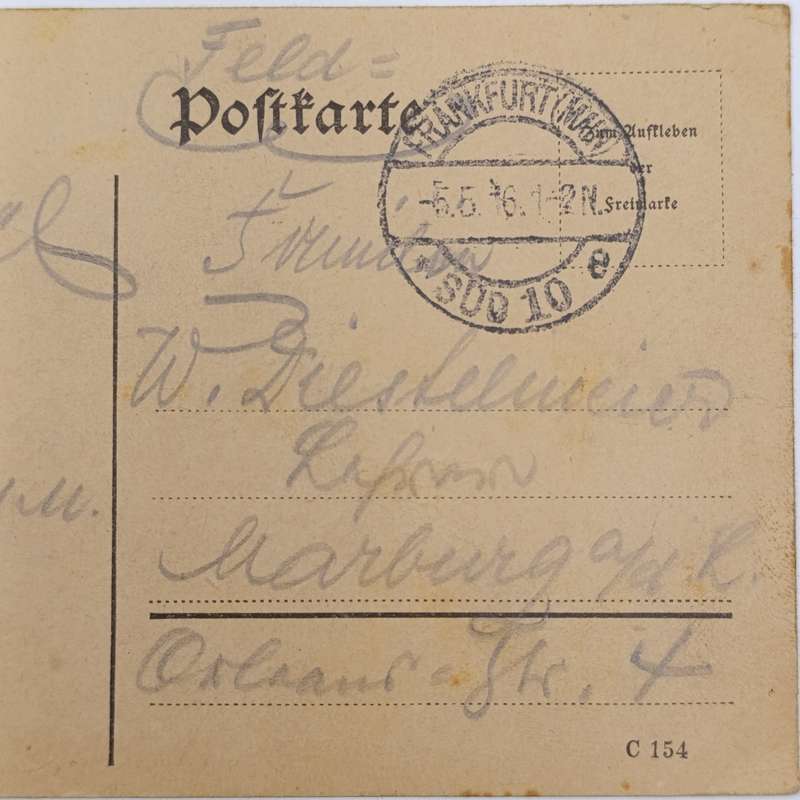 Feld=
Postkarte
FRANKFURT (MAIN)
-5.5.16.1-2N.
* SÜD 10 e
Zum Aufkleben
der
Freimarke
Fräulein
W. Diestelmeier
Lehrerin
Marburg a/d L.
Orleans-Str. 4
M.
C 154